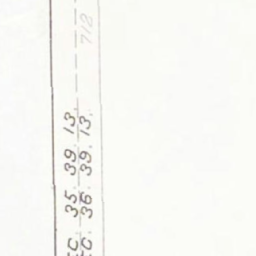 EC. 35. 39. 13.
EC. 36. 39. 13.
712